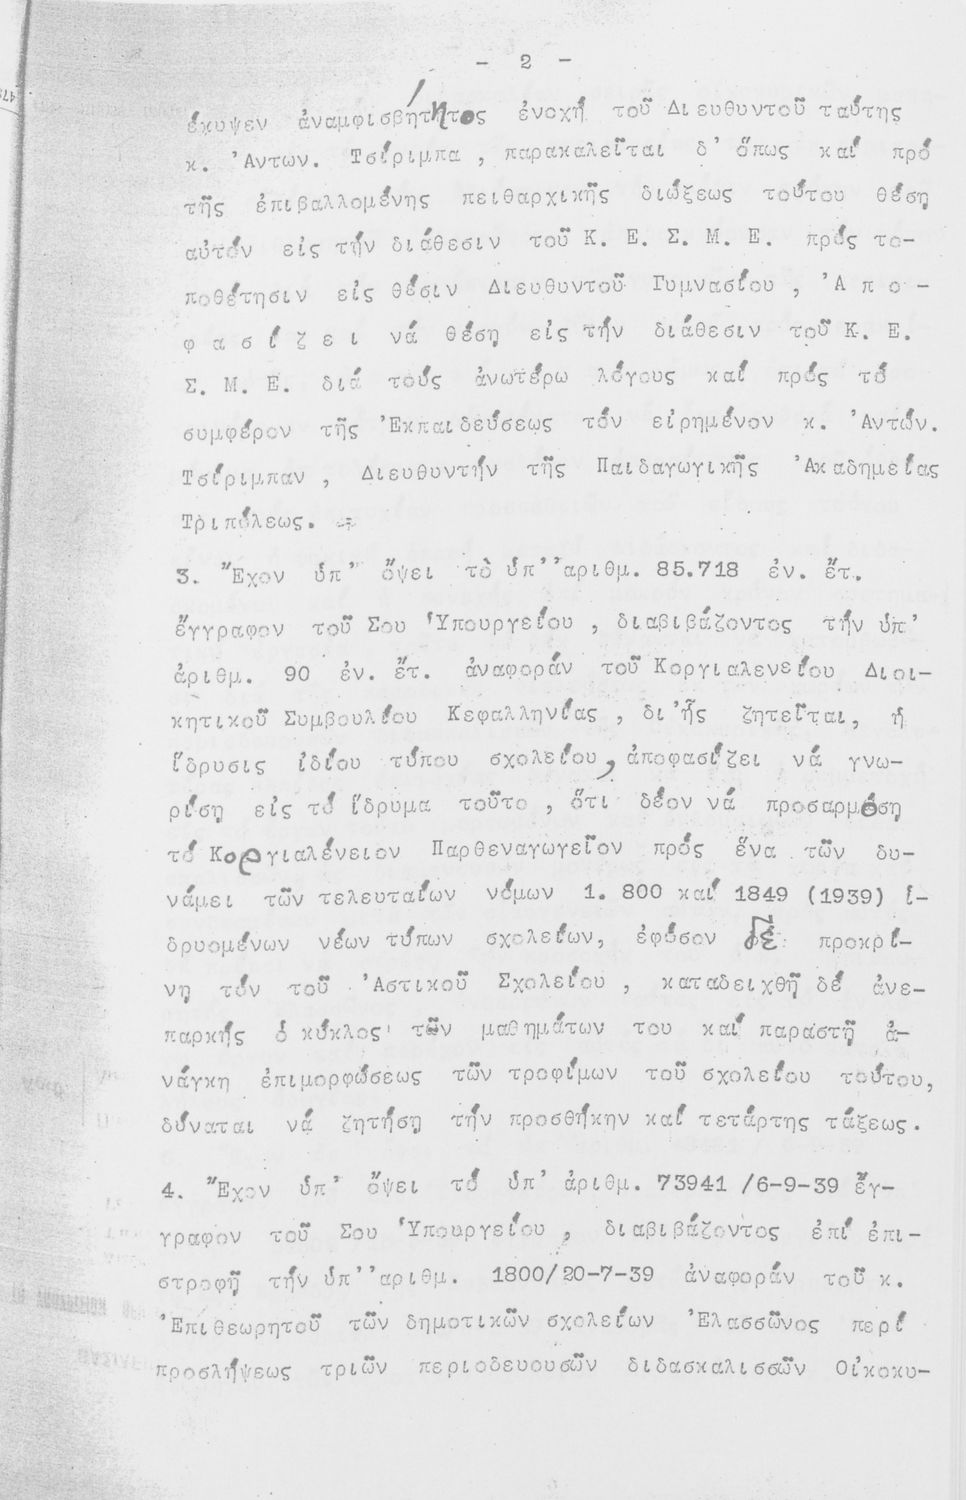 - 2 -
έκυψεν ἀναμφισβήτητος ἐνοχή τοῦ Διευθυντοῦ ταύτης
κ. Ἀντων. Τσίριμπα , παρακαλεῖται δ' ὅπως καί πρό
τῆς ἐπιβαλλομένης πειθαρχικῆς διώξεως τούτου θέσῃ
αὐτόν εἰς τήν διάθεσιν τοῦ Κ. Ε. Σ. Μ. Ε. πρός το-
ποθέτησιν εἰς θέσιν Διευθυντοῦ Γυμνασίου , Ἀ π ο -
φ α σ ί ζ ε ι νά θέσῃ εἰς τήν διάθεσιν τοῦ Κ. Ε.
Σ. Μ. Ε. διά τούς ἀνωτέρω λόγους καί πρός τό
συμφέρον τῆς Ἐκπαιδεύσεως τόν εἰρημένον κ. Ἀντών.
Τσίριμπαν , Διευθυντήν τῆς Παιδαγωγικῆς Ἀκαδημείας
Τριπόλεως.
3. Ἔχον ὑπ' ὄψει τὸ ὑπ' ἀριθμ. 85.718 ἐν. ἔτ.
ἔγγραφον τοῦ Σου Ὑπουργείου , διαβιβάζοντος τήν ὑπ'
ἀριθμ. 90 ἐν. ἔτ. ἀναφοράν τοῦ Κοργιαλενείου Διοι-
κητικοῦ Συμβουλίου Κεφαλληνίας , δι' ἧς ζητεῖται, ἡ
ἵδρυσις ἰδίου τύπου σχολείου, ἀποφασίζει νά γνω-
ρίσῃ εἰς τό ἵδρυμα τοῦτο , ὅτι δέον νά προσαρμόσῃ
τό Κοργιαλένειον Παρθεναγωγεῖον πρός ἕνα τῶν δυ-
νάμει τῶν τελευταίων νόμων 1. 800 καί 1849 (1939) ἱ-
δρυομένων νέων τύπων σχολείων, ἐφόσον δέ προκρί-
νῃ τόν τοῦ Ἀστικοῦ Σχολείου , καταδειχθῇ δέ ἀνε-
παρκής ὁ κύκλος τῶν μαθημάτων του καί παραστῇ ἀ-
νάγκη ἐπιμορφώσεως τῶν τροφίμων τοῦ σχολείου τούτου,
δύναται νά ζητήσῃ τήν προσθήκην καί τετάρτης τάξεως.
4. Ἔχον ὑπ' ὄψει τό ὑπ' ἀριθμ. 73941 /6-9-39 ἔγ-
γραφον τοῦ Σου Ὑπουργείου , διαβιβάζοντος ἐπί ἐπι-
στροφῇ τήν ὑπ' ἀριθμ. 1800/20-7-39 ἀναφοράν τοῦ κ.
Ἐπιθεωρητοῦ τῶν δημοτικῶν σχολείων Ἐλασσῶνος περί
προσλήψεως τριῶν περιοδευουσῶν διδασκαλισσῶν Οἰκοκυ-